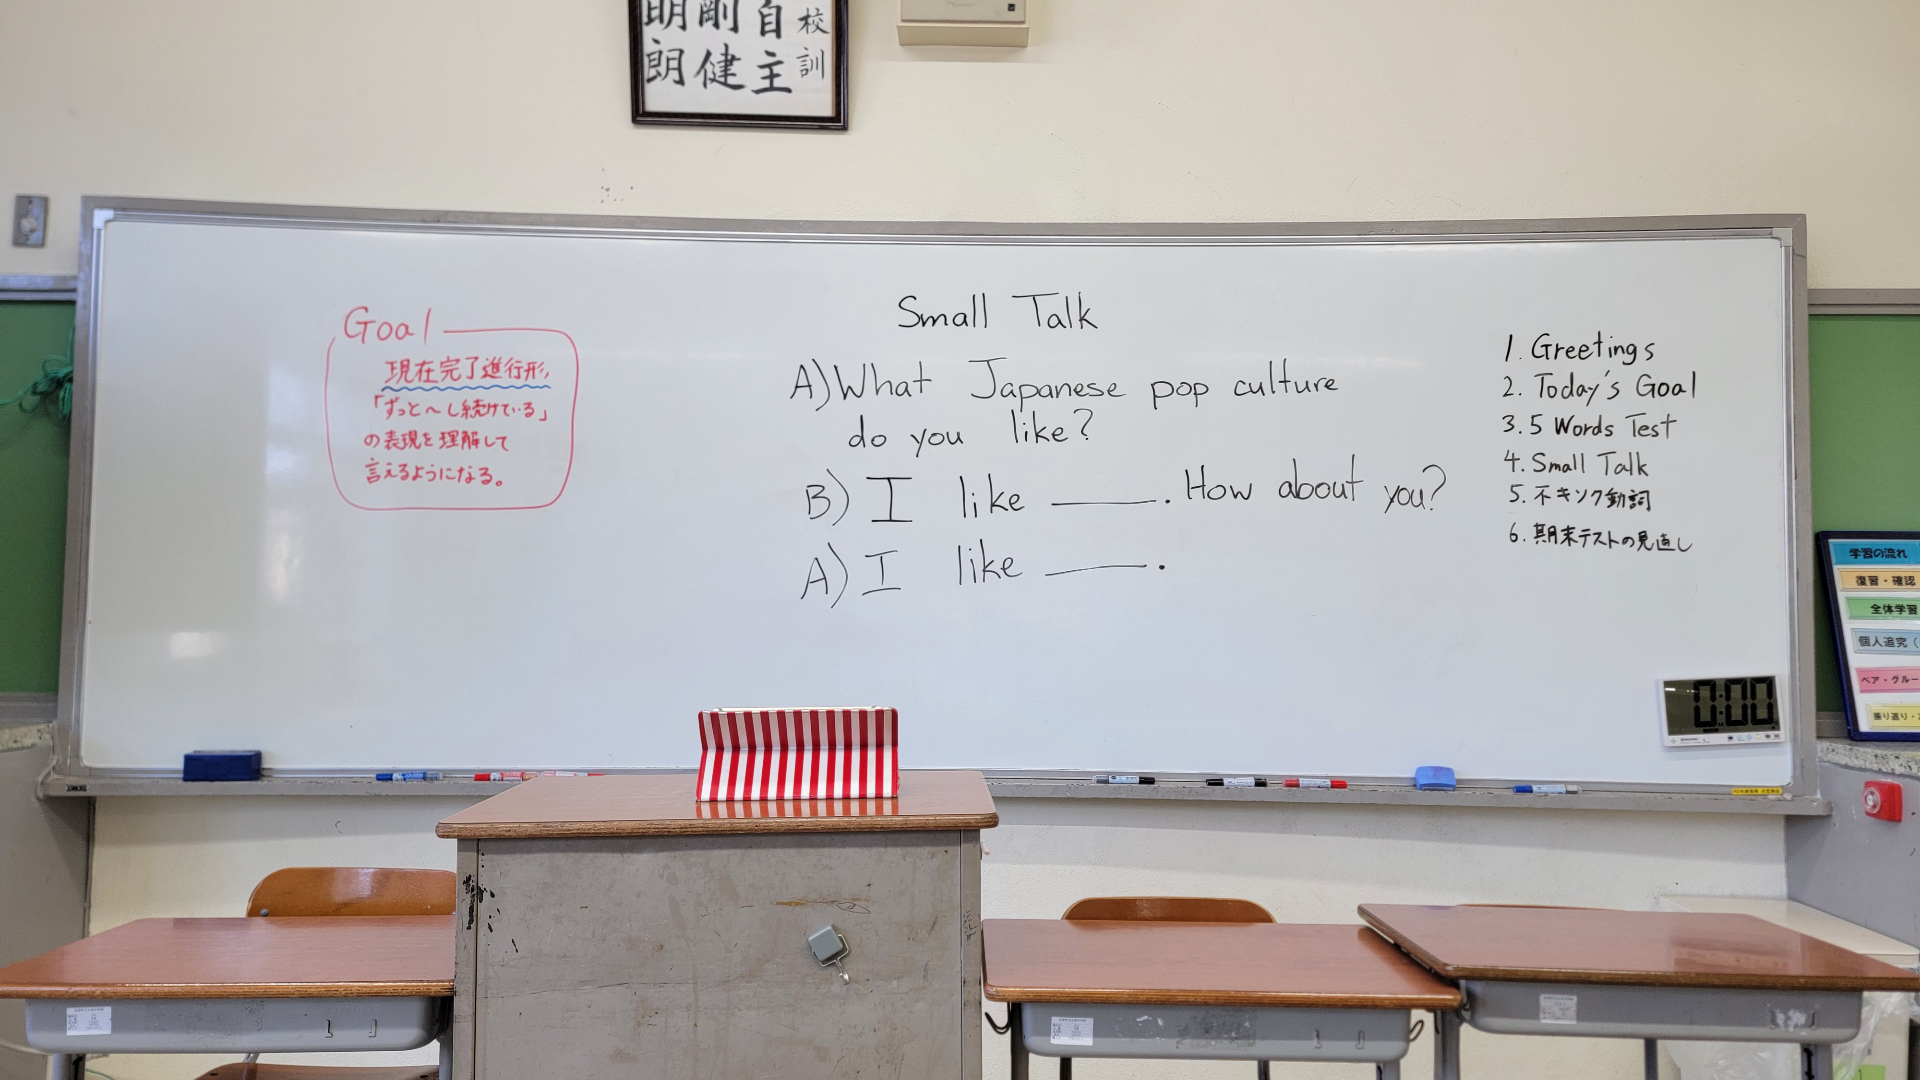 校訓
自主
剛健
明朗
Goal
現在完了進行形
「ずっと〜し続けている」
の表現を理解して
言えるようになる。
Small Talk
A) What Japanese pop culture
do you like?
B) I like ____. How about you?
A) I like ____.
1. Greetings
2. Today's Goal
3. 5 Words Test
4. Small Talk
5. 不キソク動詞
6. 期末テストの見直し
学習の流れ
復習・確認
全体学習
個人追究（
ペア・グルー
振り返り・
0:00